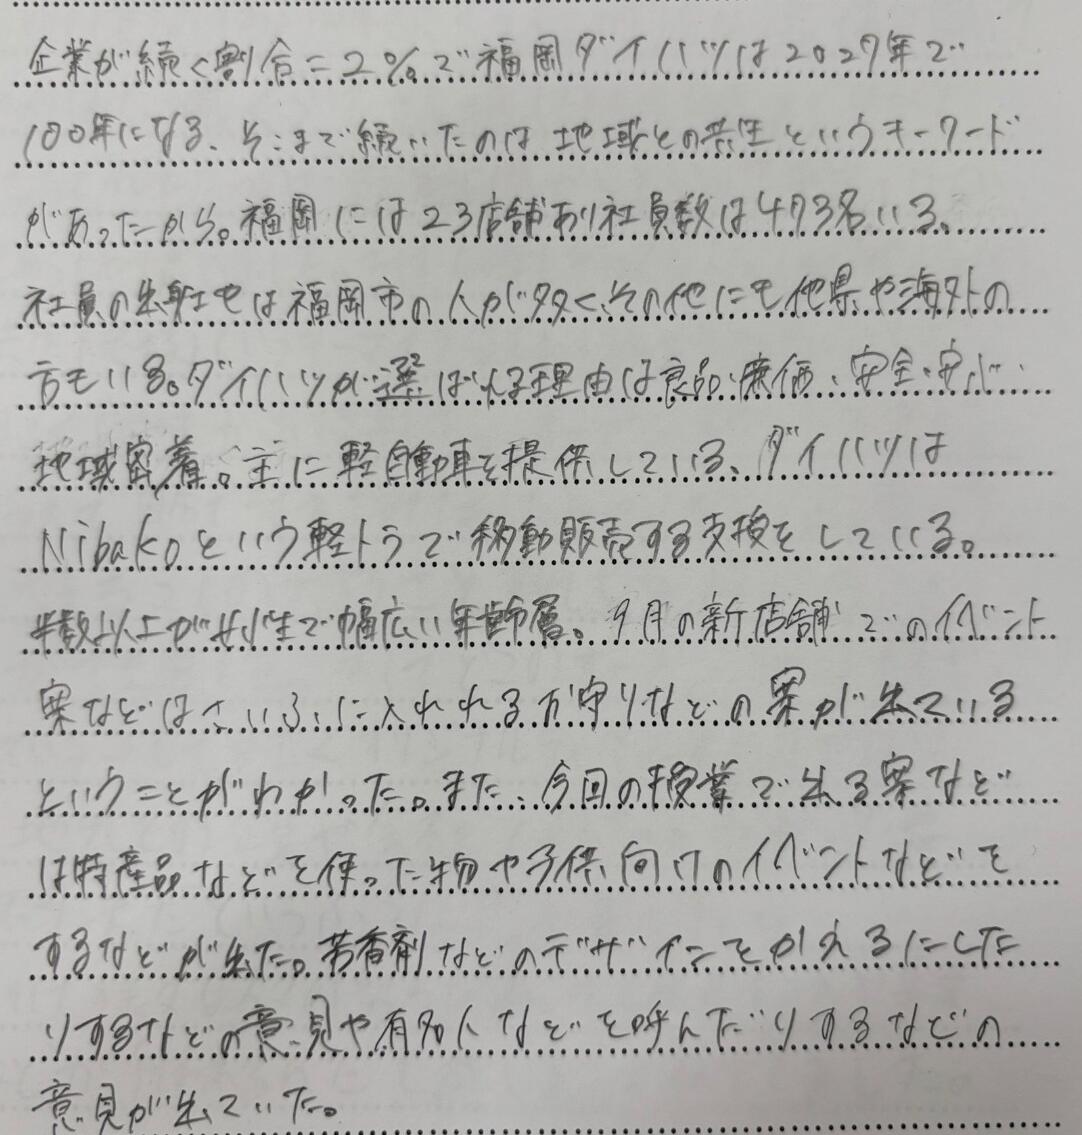 企業が続く割合=2%で福岡ダイハツは2027年で
100年になる、そこまで続いたのは地域との共生というキーワード
があったから。福岡には23店舗あり社員数は473名いる。
社員の出身地は福岡市の人が多く、その他にも他県や海外の
方もいる。ダイハツが選ばれる理由は良品・廉価・安全・安心・
地域密着。主に軽自動車を提供している、ダイハツは
Nibakoという軽トラで移動販売する支援をしている。
半数以上が女性で幅広い年齢層。9月の新店舗でのイベント
案などはさいふに入れれるお守りなどの案が出ている
ということがわかった。また、今回の授業で出る案など
は特産品などを使った物や子供向けのイベントなどを
するなどが出た。芳香剤などのデザインをかえるにした
りするなどの意見や有名人などを呼んだりするなどの
意見が出ていた。